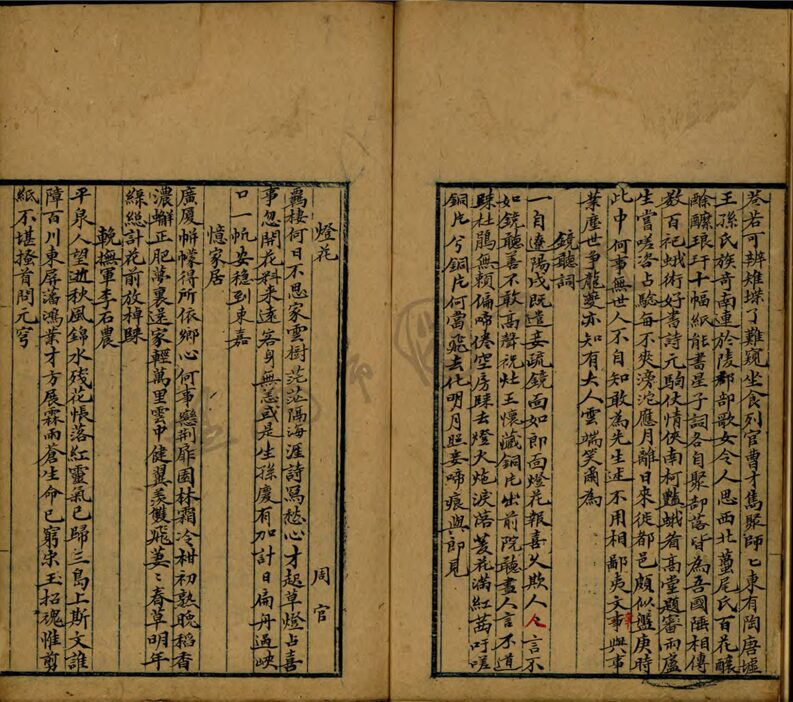 若可辨雉堞了難窺坐食列官曹才雋聚師乙東有陶唐墟
王孫氏族奇南連於陵鄰部歌女令人思西北蠆尾氏百花釀
醁醾琅玕十幅紙能書星子詞各自聚部落皆為吾國陲相傳
數百祀蛾術好書詩元駒伏情俠南柯艷蛾眉高堂題審雨廬
生嘗嗟咨占驗每不爽滂沱應月離日來徙都邑頗似盤庚時
此中何事無世人不自知敢為先生述不用相鄙夷文章事與事
業塵世爭龍夔亦知有大人雲端笑爾為
鏡聽詞
一自遼陽戍既遣妾疏鏡面如郎面燈花報喜久欺人人言不
如鏡聽善不敢高聲祝灶王懷藏銅片出前院聽盡人言不道
歸杜鵑無賴偏啼倦空房歸去燈火灺淚落菱花滿紅茜吁嗟
銅片兮銅片何當飛去化明月照妾啼痕與郎見
燈花 周官
羈棲何日不思家雲樹茫茫隔海涯詩寫愁心才起草燈占喜
事忽開花料來遠客身無恙或是生孫慶有加計日扁舟過峽
口一帆安穩到東嘉
憶家居
廣廈帡幪得所依鄉心何事戀荆扉園林霜冷柑初熟晚稻香
濃蠏正肥萬裏送家輕萬里雲中健翼羨雙飛萋萋春草明年
綠總計花前放棹歸
輓撫軍李石農
平泉人望逝秋風錦水殘花悵落紅靈氣已歸三島上斯文誰
障百川東屏藩鴻業才方展霖雨蒼生命已窮宋玉招魂惟剪
紙不堪搔首問元穹